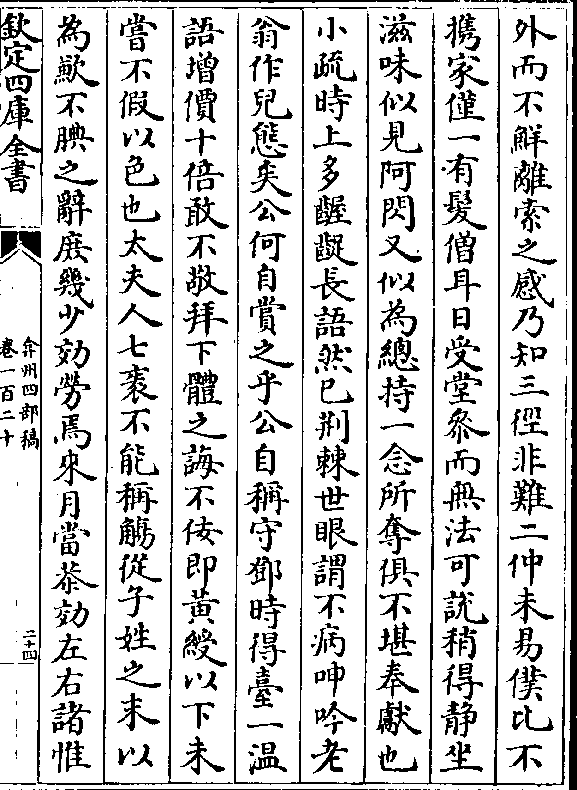 外而不鮮離索之感乃知三徑非難二仲未易僕比不
携家僅一有髮僧耳日受堂叅而無法可說稍得静坐
滋味似見阿閃又似為總持一念所奪俱不堪奉獻也
小疏時上多齷齪長語然已荆棘世眼謂不病呻吟老
翁作兒態矣公何自賞之乎公自稱守鄧時得臺一温
語增價十倍敢不敬拜下體之誨不佞即黄綬以下未
嘗不假以色也太夫人七袠不能稱觴從子姓之末以
為歉不腆之辭庶幾少効勞焉來月當恭効左右諸惟
欽定四庫全書
弇州四部稿
卷一百二十
二十四